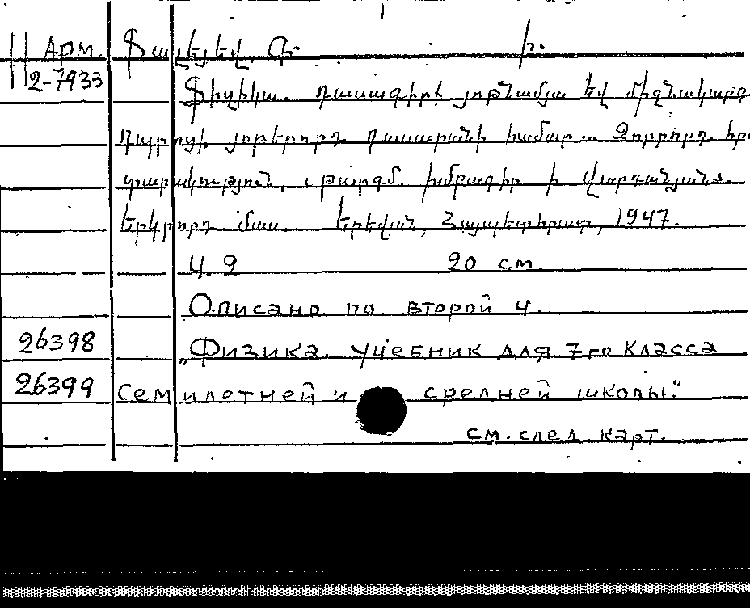 Арм. Ֆալեյեվ, Գ. Ի.
2-7933
Ֆիզիկա. Դասագիրք յոթնամյա եվ միջնակարգ
դպրոցի յոթերորդ դասարանի համար... Չորրորդ հր
թարգմ. խմբագիր
Երկրորդ մաս. Երեվան, Հայպետհրատ, 1947.
Ч. 2 20 см
Описано по второй ч.
26398 „Физика. Учебник для 7-го класса
26399 семилетней и средней школы."
см. след. карт.